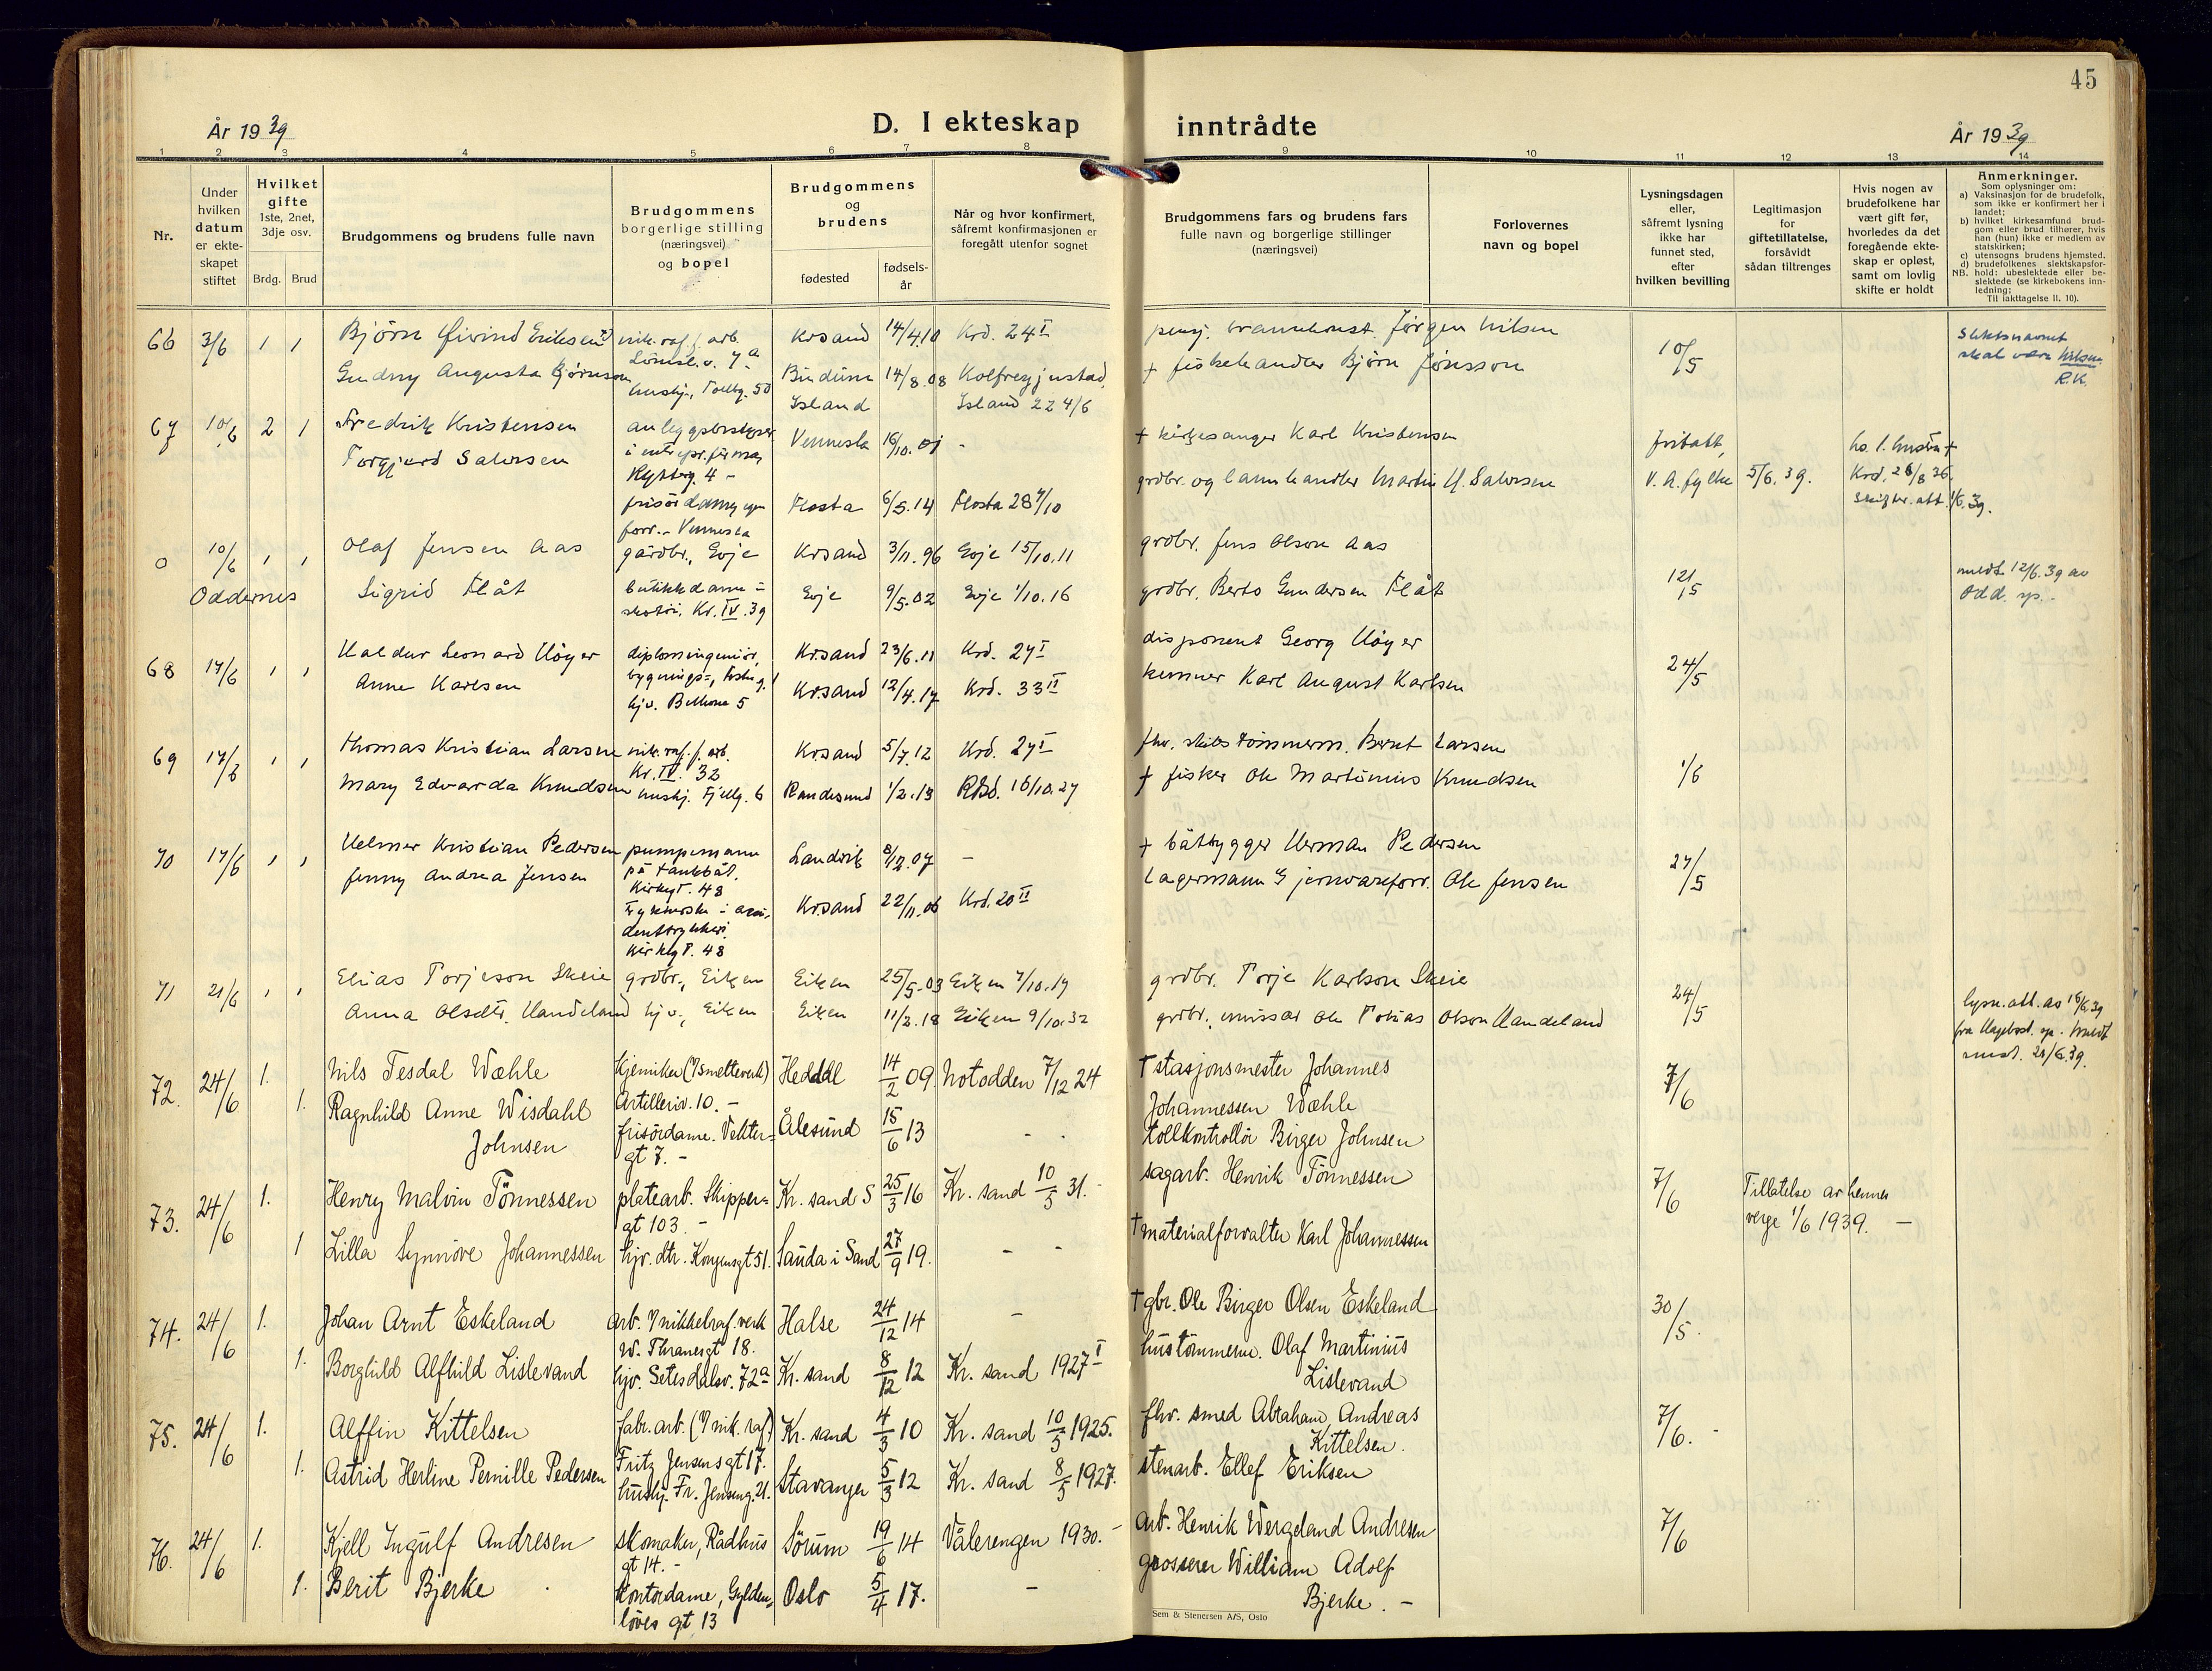 45
År 1939
D. I ekteskap inntrådte
År 1939
1 2 3 4 5 6 7 8 9 10 11 12 13 14
Nr.
Under hvilken datum er ekteskapet stiftet
Hvilket gifte 1ste, 2net, 3dje osv.
Brdg. Brud
Brudgommens og brudens fulle navn
Brudgommens borgerlige stilling (næringsvei) og bopel
Brudgommens og brudens
fødested
fødsels-år
Når og hvor konfirmert, såfremt konfirmasjonen er foregått utenfor sognet
Brudgommens fars og brudens fars fulle navn og borgerlige stillinger (næringsvei)
Forlovernes navn og bopel
Lysningsdagen eller, såfremt lysning ikke har funnet sted, efter hvilken bevilling
Legitimasjon for giftetillatelse, forsåvidt sådan tiltrenges
Hvis nogen av brudefolkene har vært gift før, hvorledes da det foregående ekteskap er opløst, samt om lovlig skifte er holdt
Anmerkninger.
Som oplysninger om:
a) Vaksinasjon for de brudefolk, som ikke er konfirmert her i landet;
b) hvilket kirkesamfund brudgom eller brud tilhører, hvis han (hun) ikke er medlem av statskirken;
c) utensogns brudens hjemsted.
d) brudefolkenes slektskapsforhold: ubeslektede eller beslektede (se kirkebokens innledning;
NB. Til iakttagelse II. 10).
66 3/6 1 1 Bjørn Øivind Eriksen nik. raf. f. arb. Krsand 14/4.10 Krd. 24 I pensj. Jørgen Nilsen 10/5 Slektsnavnet
skal være Nilsen
R.K.
Gudny Augusta Bjørnson hushj., Tollbg. 50 Island 14/8.08 Island 22 4/6 + fiskehandler Bjørn Jónsson
67 10/6 2 1 Fredrik Kristensen anleggsbestyrer Vennesla 16/10.01 - + kirkesanger Karl Kristensen fritatt,
V. A. fylke 5/6.39. Krd. 26/8 36.
Torgjerd Salvesen frisördame Flosta 6/5.14 Flosta 28 1/10 grdbr. og landhandler Martin Salvesen
Skifter. att. 1/6.39.
o 10/6 1 1 Olaf Jensen Aas gårdbr., Evje Krsand 3/11.96 Evje 15/10.11 grdbr. Jens Olson Aas 12/5 meldt 12/6.39 av
Odd. sp.
Oddernes Sigrid Flåt butikkdame i skotöi, Kr. IV. 39 Evje 9/5.02 Evje 1/10.16 grdbr. Berto Gundersen Flåt
68 17/6 1 1 Haldur Leonard Höyer diplomingeniör, Krsand 23/6.11 Krd. 27 I disponent Georg Höyer 24/5
Anne Karlsen hjv. Bellona 5 Krsand 12/4.17 Krd. 33 II kemner Karl August Karlsen
69 17/6 1 1 Thomas Kristian Larsen nik. raf. f. arb. Kr. IV. 32 Krsand 5/7.12 Krd. 27 I fhv. skibstömmerm. Bernt Larsen 1/6
Mary Edvarda Knudsen hushj. Fjellg. 6 Randesund 1/2.13 Rsd. 16/10.27 + fisker Ole Martinius Knudsen
70 17/6 1 1 Helmer Kristian Pedersen pumpemann på tankbåt. Kirkegt. 48 Landvik 8/12.07 - + båtbygger Herman Pedersen 27/5
Jenny Andrea Jensen Kirkegt. 48 Krsand 22/11.06 Krd. 20 II Lagermann i jernvareforr. Ole Jensen
71 21/6 1 1 Elias Torjeson Skeie grdbr., Eiken Eiken 25/5.03 Eiken 7/10.17 grdbr. Torje Karlson Skeie 24/5 lysn. att. av 16/6.39
fra Hægebost. sp. - meldt
21/6.39.
Anna Olsdtr. Handeland hjv., Eiken Eiken 11/2.18 Eiken 9/10.32 grdbr., emissær Ole Tobias Olson Handeland
72. 24/6 1. Nils Tesdal Wæhle Kjemiker (v/smelteverk) Artilleriv. 10. - Heddal 14/2 09 Notodden 7/12 24 † stasjonsmester Johannes Johannessen Wæhle 7/6
1. Ragnhild Anne Wisdahl Johnsen frisördame. Vektergt 7. - Ålesund 15/6 13 - - tollkontrollör Birger Johnsen
73. 24/6 1. Henry Malvin Tönnessen platearb. Skippergt 103. - Kr. sand S 25/3 16 Kr. sand 10/5 31. sagarb. Henrik Tönnessen 7/6 Tillatelse av hennes
verge 1/6 1939. -
1 Lilla Synnöve Johannessen hjv. dtr. Kongensgt 51. Sauda i Sand 27/9 19. - - † materialforvalter Karl Johannessen
74. 24/6 1. Johan Arnt Eskeland arb. v/nikkelraf. verk W. Thranesgt 18. Halse 24/12 14 - † gbr. Ole Birger Olsen Eskeland 30/5.
1. Borghild Alfhild Lislevand hjv. Setesdalsv. 72a Kr. sand 8/12 12 Kr. sand 1927 I hustömmerm. Olaf Martinius Lislevand
75. 24/6 1. Alffin Kittelsen fabr. arb. (v/nik. raf.) Fritz Jensensgt 17. Kr. sand 4/3 10 Kr. sand 10/5 1925. fhv. smed Abraham Andreas Kittelsen. 7/6. -
1. Astrid Herline Pernille Pedersen hushj. Fr. Jenseng. 21. Stavanger 5/3 12 Kr. sand 8/5 1927. stenarb. Ellef Eriksen
76. 24/6 1. Kjell Ingulf Andresen skomaker, Rådhusgt 14. - Sörum 19/6 14 Vålerengen 1930. - arb. Henrik Wergeland Andresen 7/6
1. Berit Bjerke kontordame, Gyldenlöves gt. 13 Oslo 5/4 17. - grosserer William Adolf Bjerke. -
Sem & Stenersen A/S, Oslo